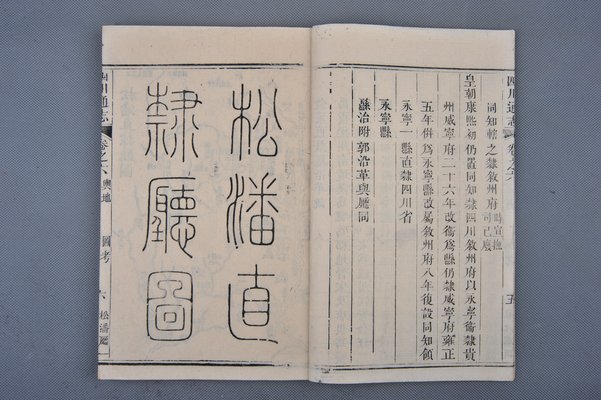 四川通志
卷之六
五
同知轄之隸敘州府時宣撫司已廢
皇朝康熙初仍置同知隸四川敘州府以永寧衞隸貴
州威寧府二十六年改衞爲縣仍隸威寧府雍正
五年倂爲永寧縣改屬敘州府八年復設同知領
永寧一縣直隸四川省
永寧縣
縣治附郭沿革與廳同
松潘直
隸廳圖
四川通志
卷之六
輿地
圖考
六
松潘廳